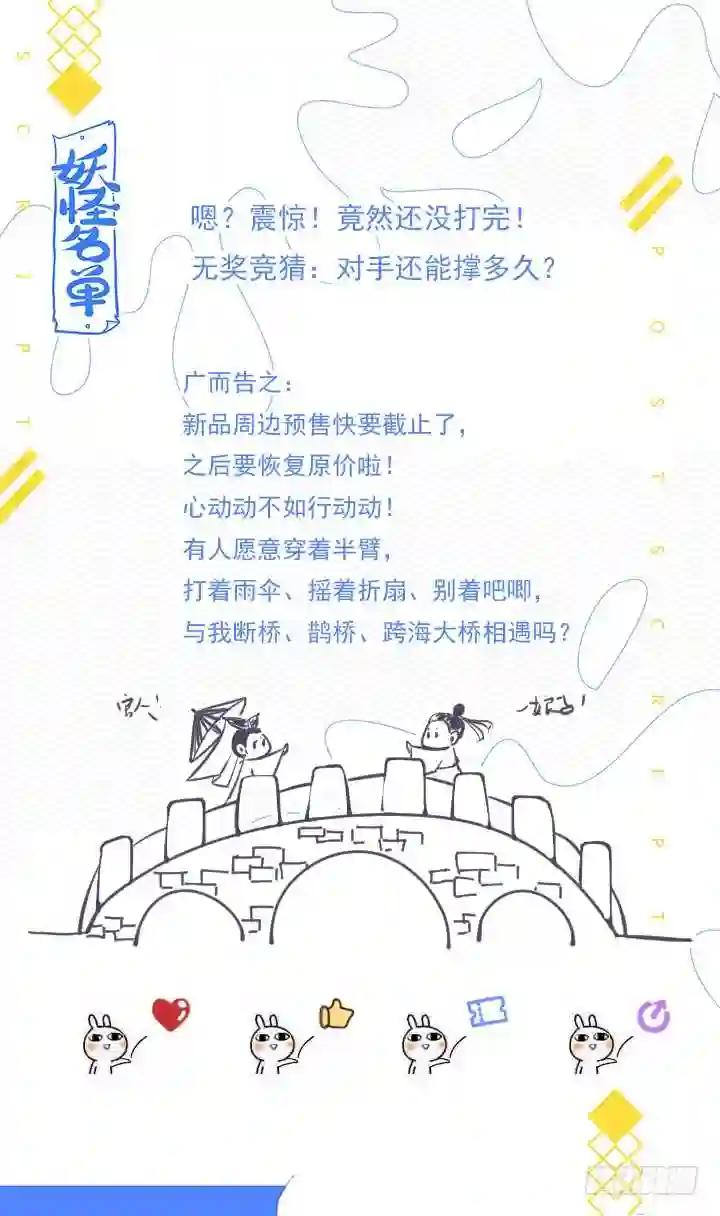 SCRIPT
妖怪名单
嗯？震惊！竟然还没打完！
无奖竞猜：对手还能撑多久？
POSTSCRIPT
广而告之：
新品周边预售快要截止了，
之后要恢复原价啦！
心动动不如行动动！
有人愿意穿着半臂，
打着雨伞、摇着折扇、别着吧唧，
与我断桥、鹊桥、跨海大桥相遇吗？
官人！
娘子！